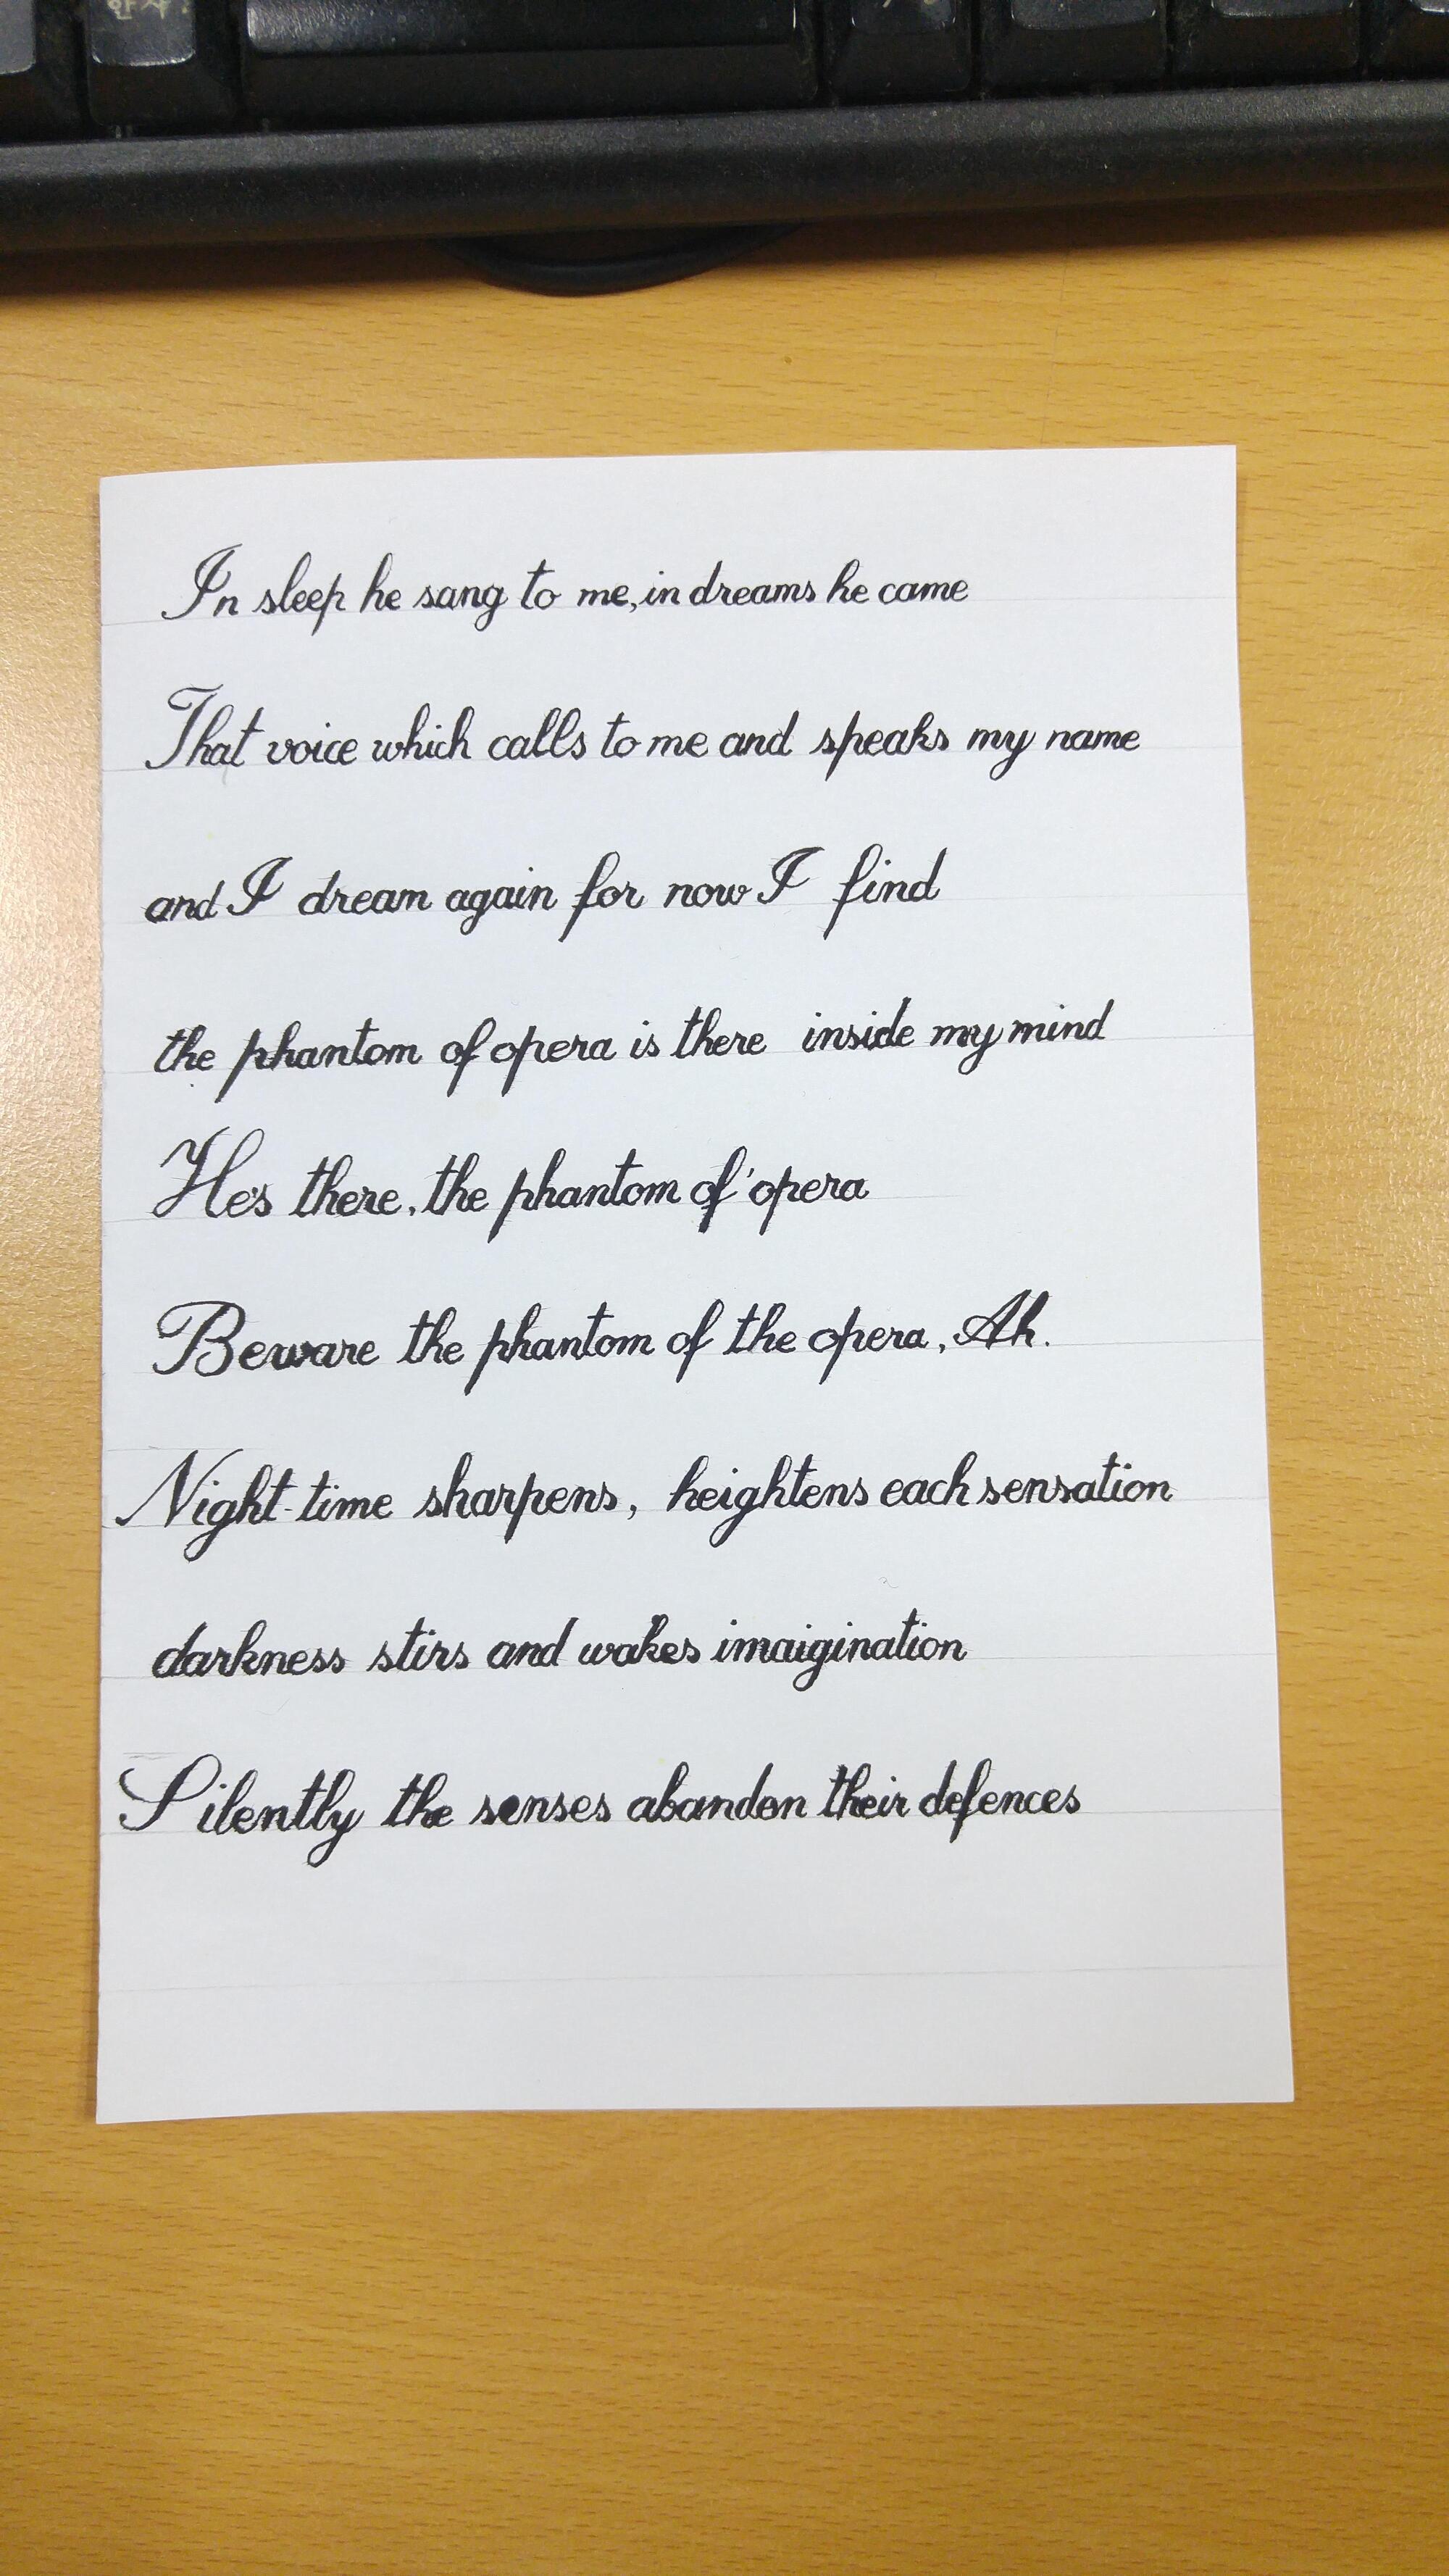 한자
In sleep he sang to me, in dreams he came
That voice which calls to me and speaks my name
and I dream again for now I find
the phantom of opera is there inside my mind
He's there, the phantom of 'opera
Beware the phantom of the opera, Ah.
Night-time sharpens, heightens each sensation
darkness stirs and wakes imaigination
Silently the senses abandon their defences